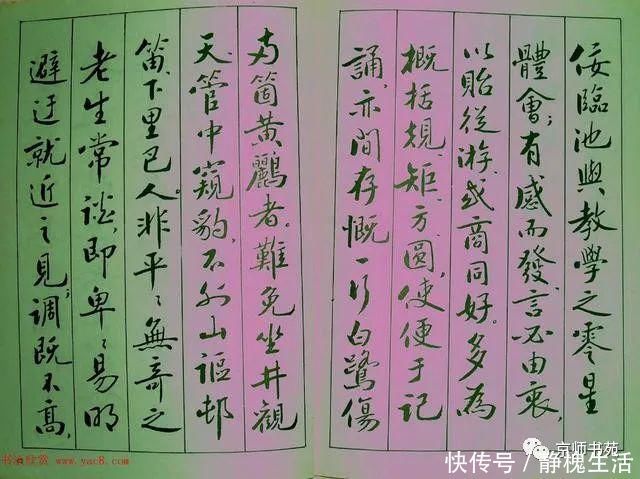 佞臨池與教學之零星
體會;有感而發,言必由衷,
以貽從游,或商同好。多為
概括規、矩、方、圓,使便于記
誦,亦間存慨一行白鷺傷
两箇黃鸝者。難免坐井觀
天,管中窺豹,不外山謳邨
笛、下里巴人。非平〻無奇之
老生常谈,即卑〻易明
避迂就近之見;調既不高,
书法欣赏 www.yac8.com
京师书苑
快传号/静槐生活